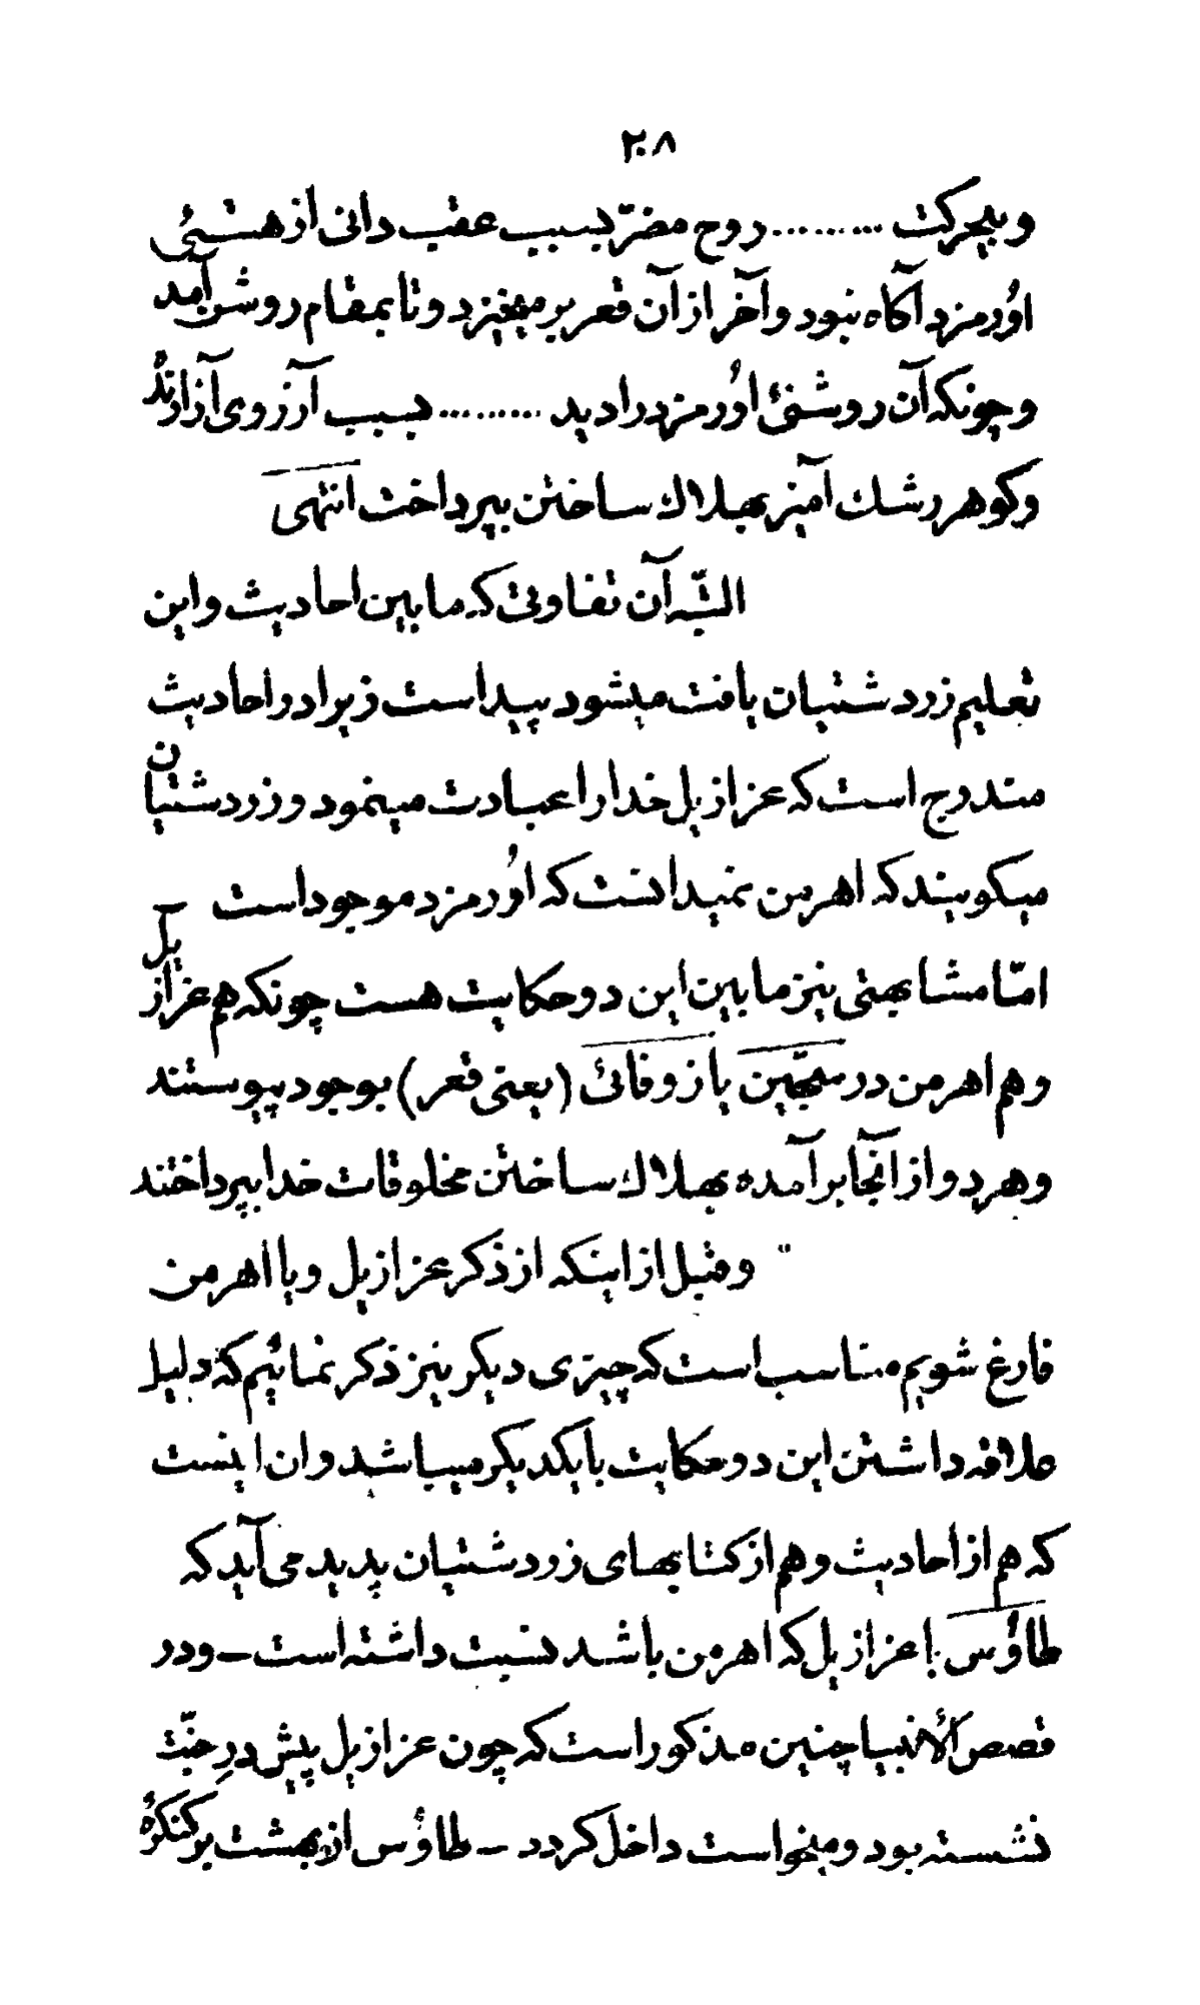 ۲۰۸
و بیحرکت ......... روح مضرّ بسبب عقب دانی از هستئی
اوُرمزد آگاه نبود و آخر از آن قعر بر میخیزد و تا بمقام روشن آمد
و چونکه آن روشنئ اوُرمزد را دید ......... بسبب آرزوی آزارندُه
وکوهر رشك آمیز بهلاك ساختن بپرداخت انتهی
البتّه آن تفاوتی که ما بین احادیث و این
تعلیم زردشتیان یافت میشود پیداست زیرا در احادیث
مندرج است که عزازیل خدا را عبادت مینمود و زردشتیان
میکویند که اهرمن نمیدانست که اوُرمزد موجود است
امّا مشابهتی نیز ما بین این دو حکایت هست چونکه هم عزازیل
و هم اهرمن در سجّین یا زوفائ (یعنی قعر) بوجود پیوستند
و هر دو از آنجا برآمده بهلاك ساختن مخلوقات خدا بپرداختند
و قبل از اینکه از ذکر عزازیل و یا اهرمن
فارغ شویم مناسب است که چیزی دیکر نیز ذکر نمائیم که دلیل
علاقه داشتن این دو حکایت با یکدیکر میباشد و ان اینست
که هم از احادیث و هم از کتابهای زردشتیان پدید می آید که
طاؤس با عزازیل که اهرمن باشد نسبت داشته است – و در
قصص الأنبیا چنین مذکور است که چون عزازیل پیش درِ جنّت
نشسته بود و میخواست داخل کردد – طاؤس از بهشت بر کنکرهٔ